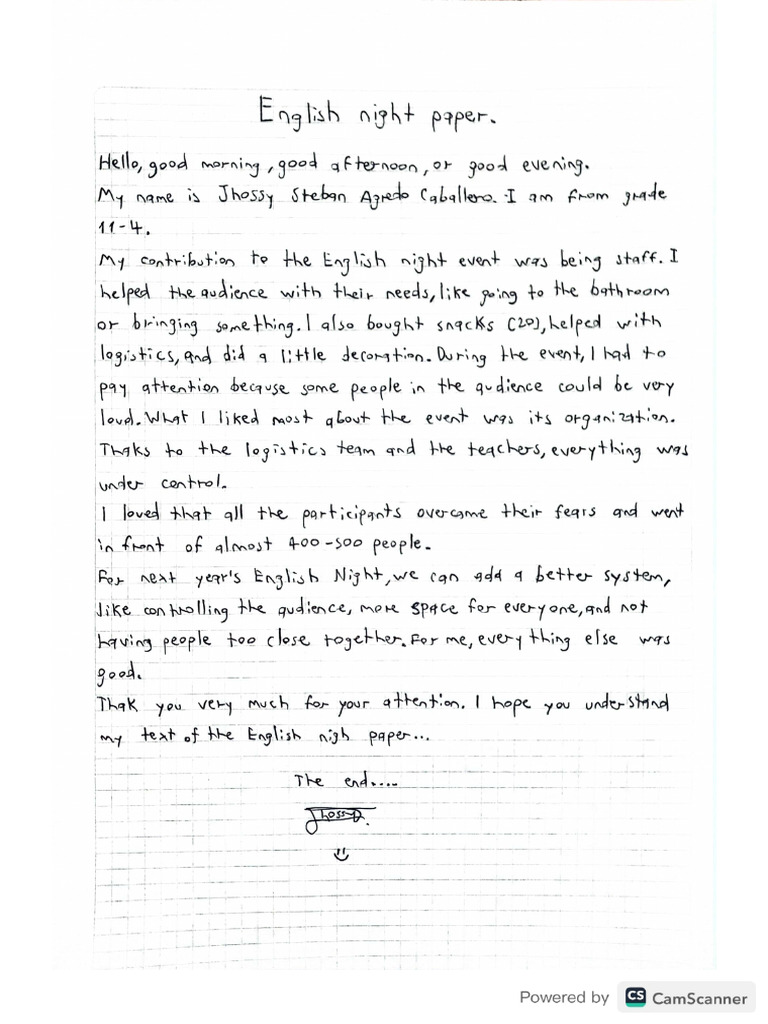 English night paper.
Hello, good morning, good afternoon, or good evening.
My name is Jhossy Steban Agredo Caballero. I am from grade
11-4.
My contribution to the English night event was being staff. I
helped the audience with their needs, like going to the bathroom
or bringing something. I also bought snacks (20), helped with
logistics, and did a little decoration. During the event, I had to
pay attention because some people in the audience could be very
loud. What I liked most about the event was its organization.
Thaks to the logistics team and the teachers, everything was
under control.
I loved that all the participants overcame their fears and went
in front of almost 400-500 people.
For next year's English Night, we can add a better system,
like controlling the audience, more space for everyone, and not
having people too close together. For me, every thing else was
good.
Thak you very much for your attention. I hope you understand
my text of the English nigh paper...
The end....
Jhossy
Powered by CS CamScanner